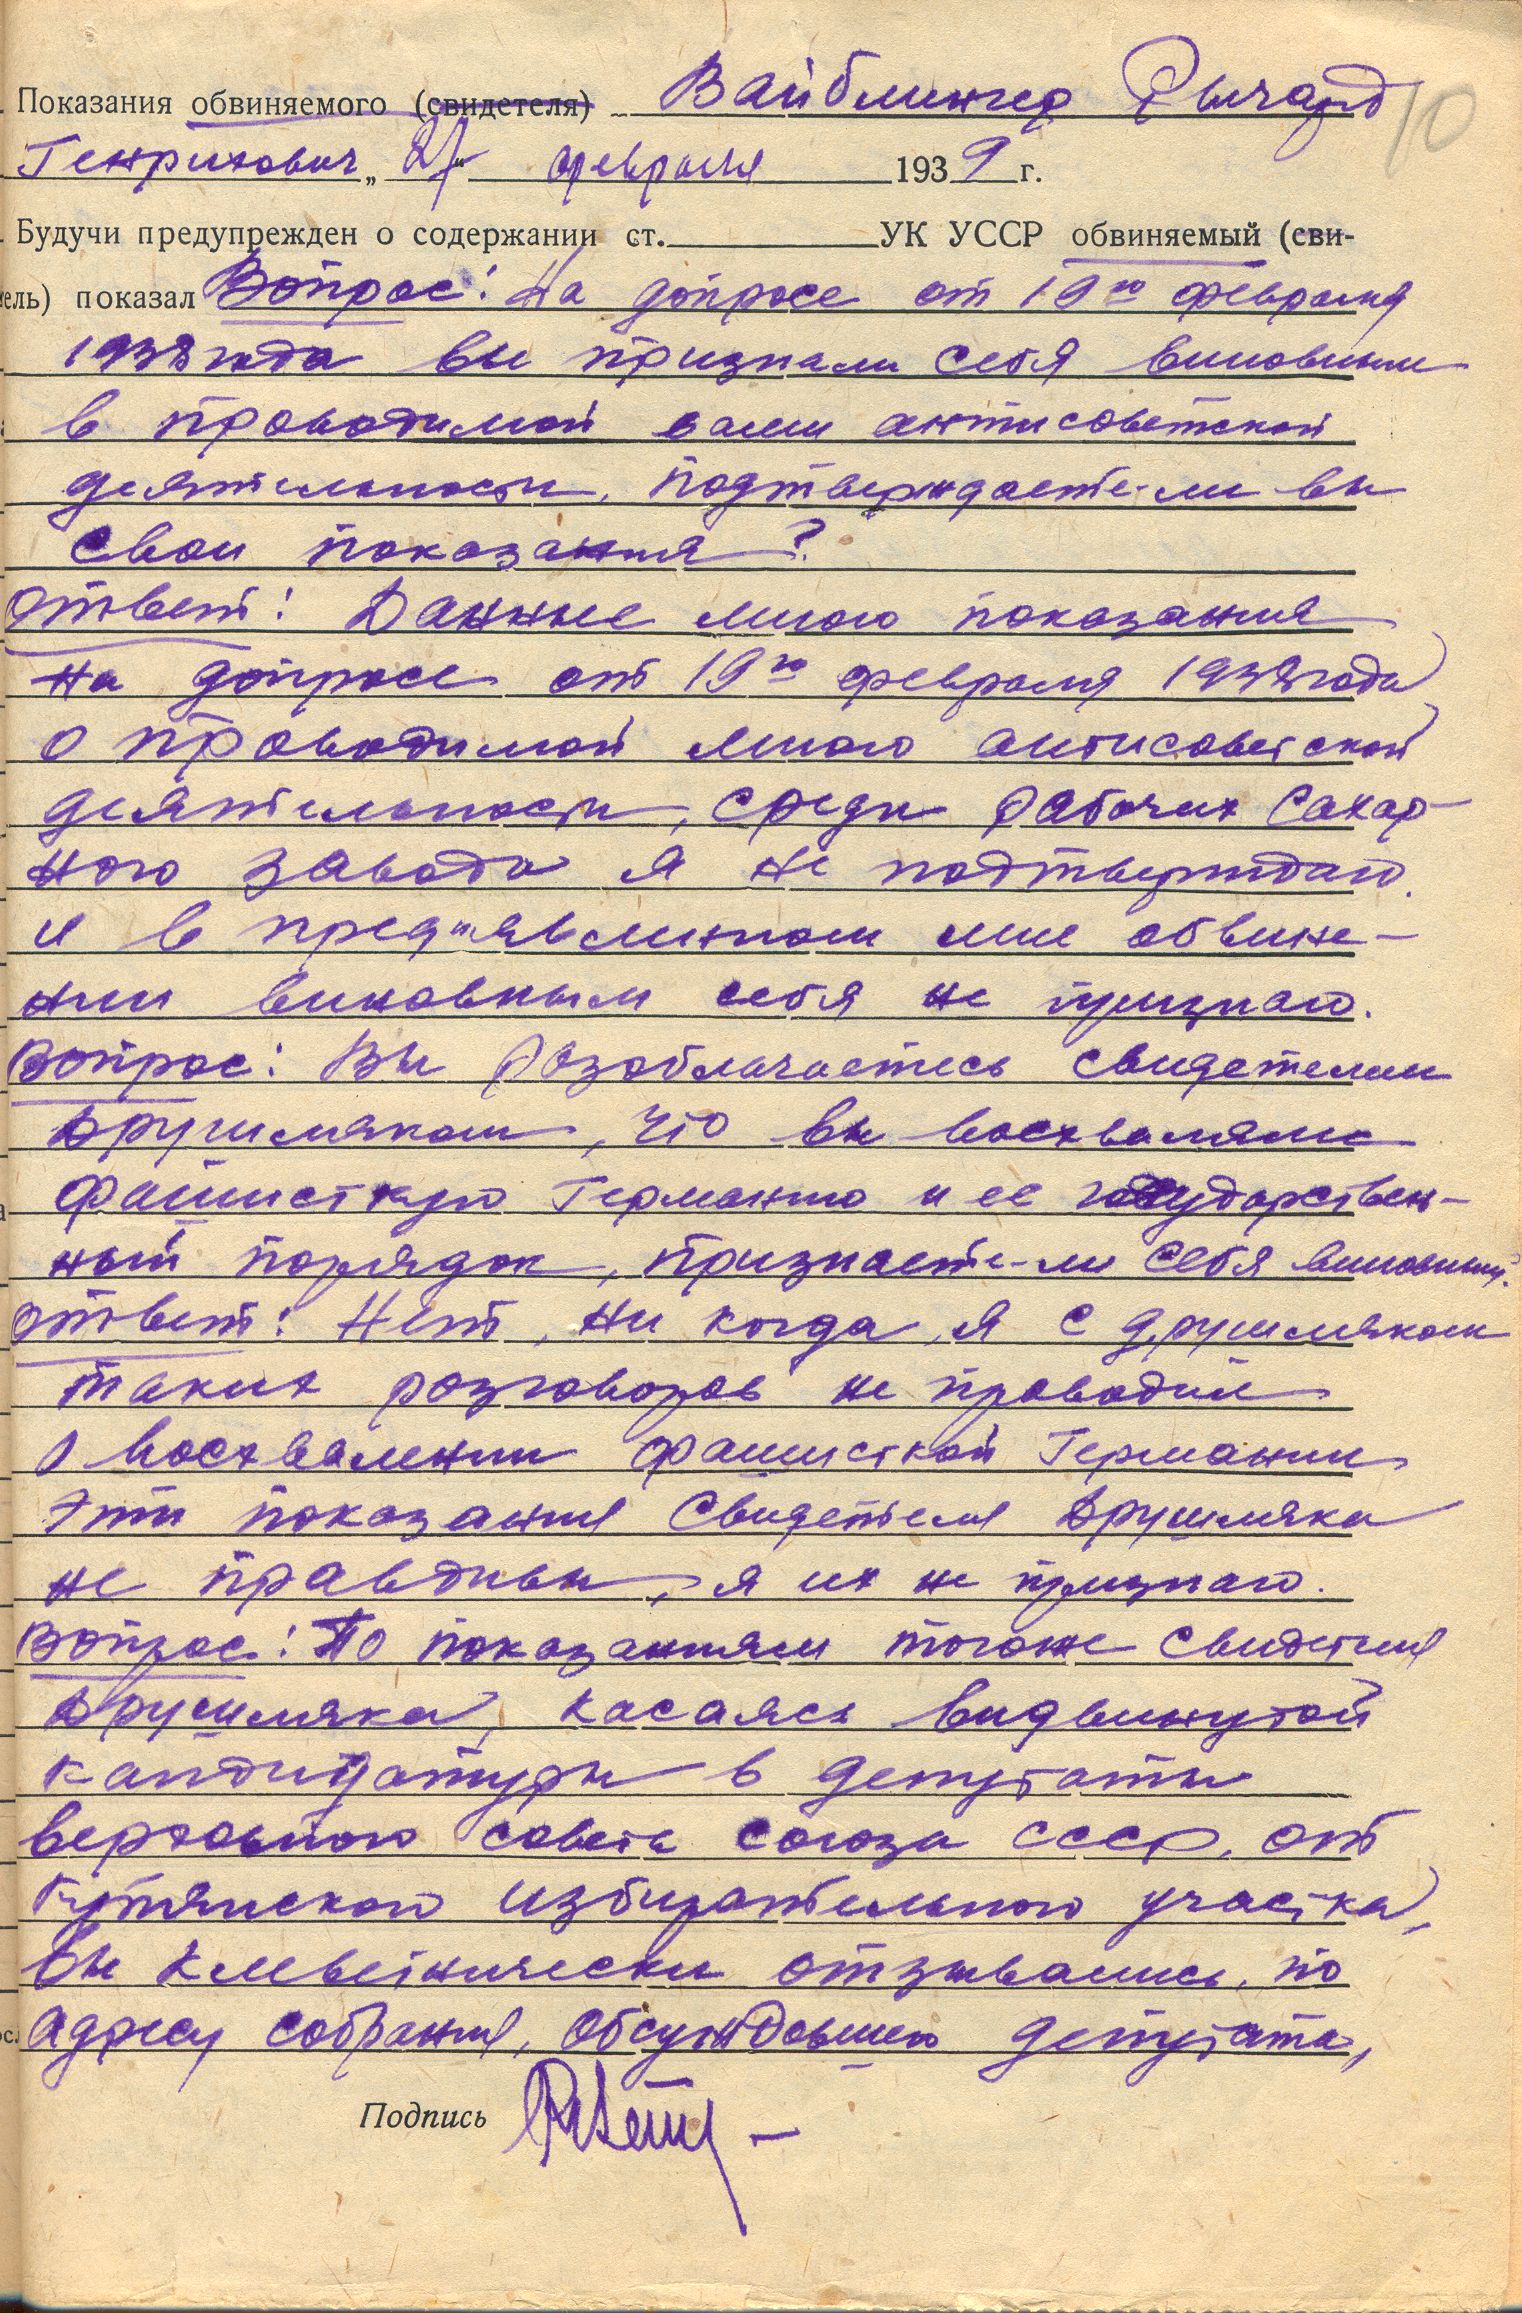 10
Показания обвиняемого (свидетеля) Вайблингер Рычард
Генрихович „27“ февраля 1939 г.
Будучи предупрежден о содержании ст. УК УССР обвиняемый (сви-
тель) показал Вопрос: На допросе от 19го февраля
1938 года вы признали себя виновным
в проводимой вами антисоветской
деятельности, подтверждаете-ли вы
свои показания?
Ответ: Данные мною показания
на допросе от 19го февраля 1938 года
о проводимой мною антисоветской
деятельности, среди рабочих Сахар-
ного завода я не подтверждаю.
и в пред"явленном мне обвине-
нии виновным себя не признаю.
Вопрос: Вы разоблачаетесь свидетелем
Друшляком, что вы восхваляли
фашисткую Германию и ее государствен-
ный порядок, признаете-ли себя виновным.
Ответ: Нет, ни когда я с друшляком
таких разговоров не проводил
о восхвалении фашисткой Германии
Эти показания Свидетеля Друшляка
не правдивы, я их не признаю.
Вопрос: По показаниям тогоже Свидетеля
Друшляка, касаясь выдвинутой
кандидатуры в депутаты
верховного совета союза СССР, от
Гутянского избирательного участка,
вы клеветнически отзывались, по
адресу собрания, обсуждавшего депутата,
Подпись